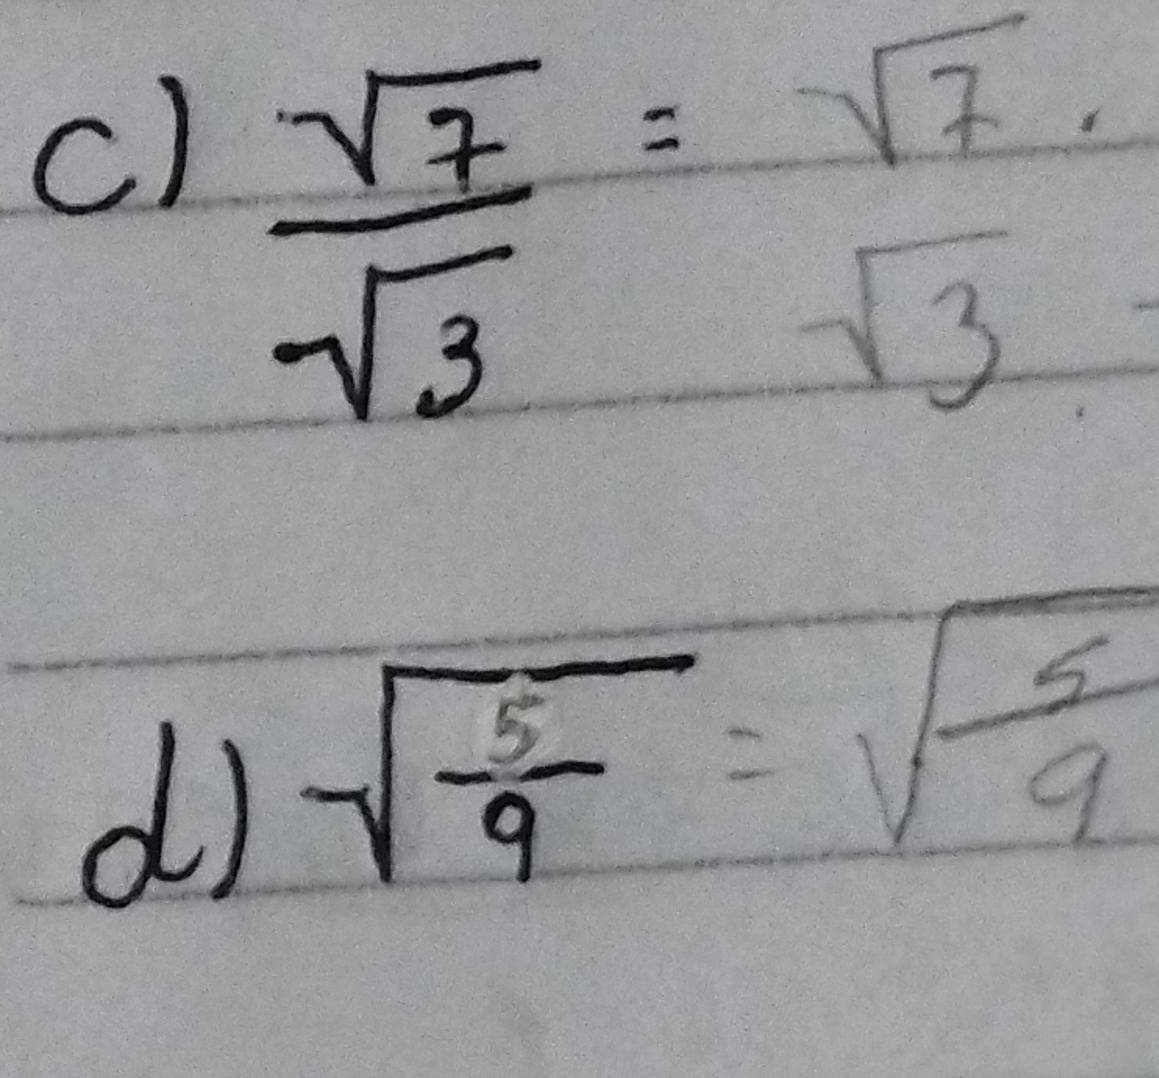 c) √7 = √7 .
√3 √3 -
d) √5/9 = √5/9